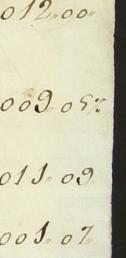 012.00.
009.05½
011.09
001.07.